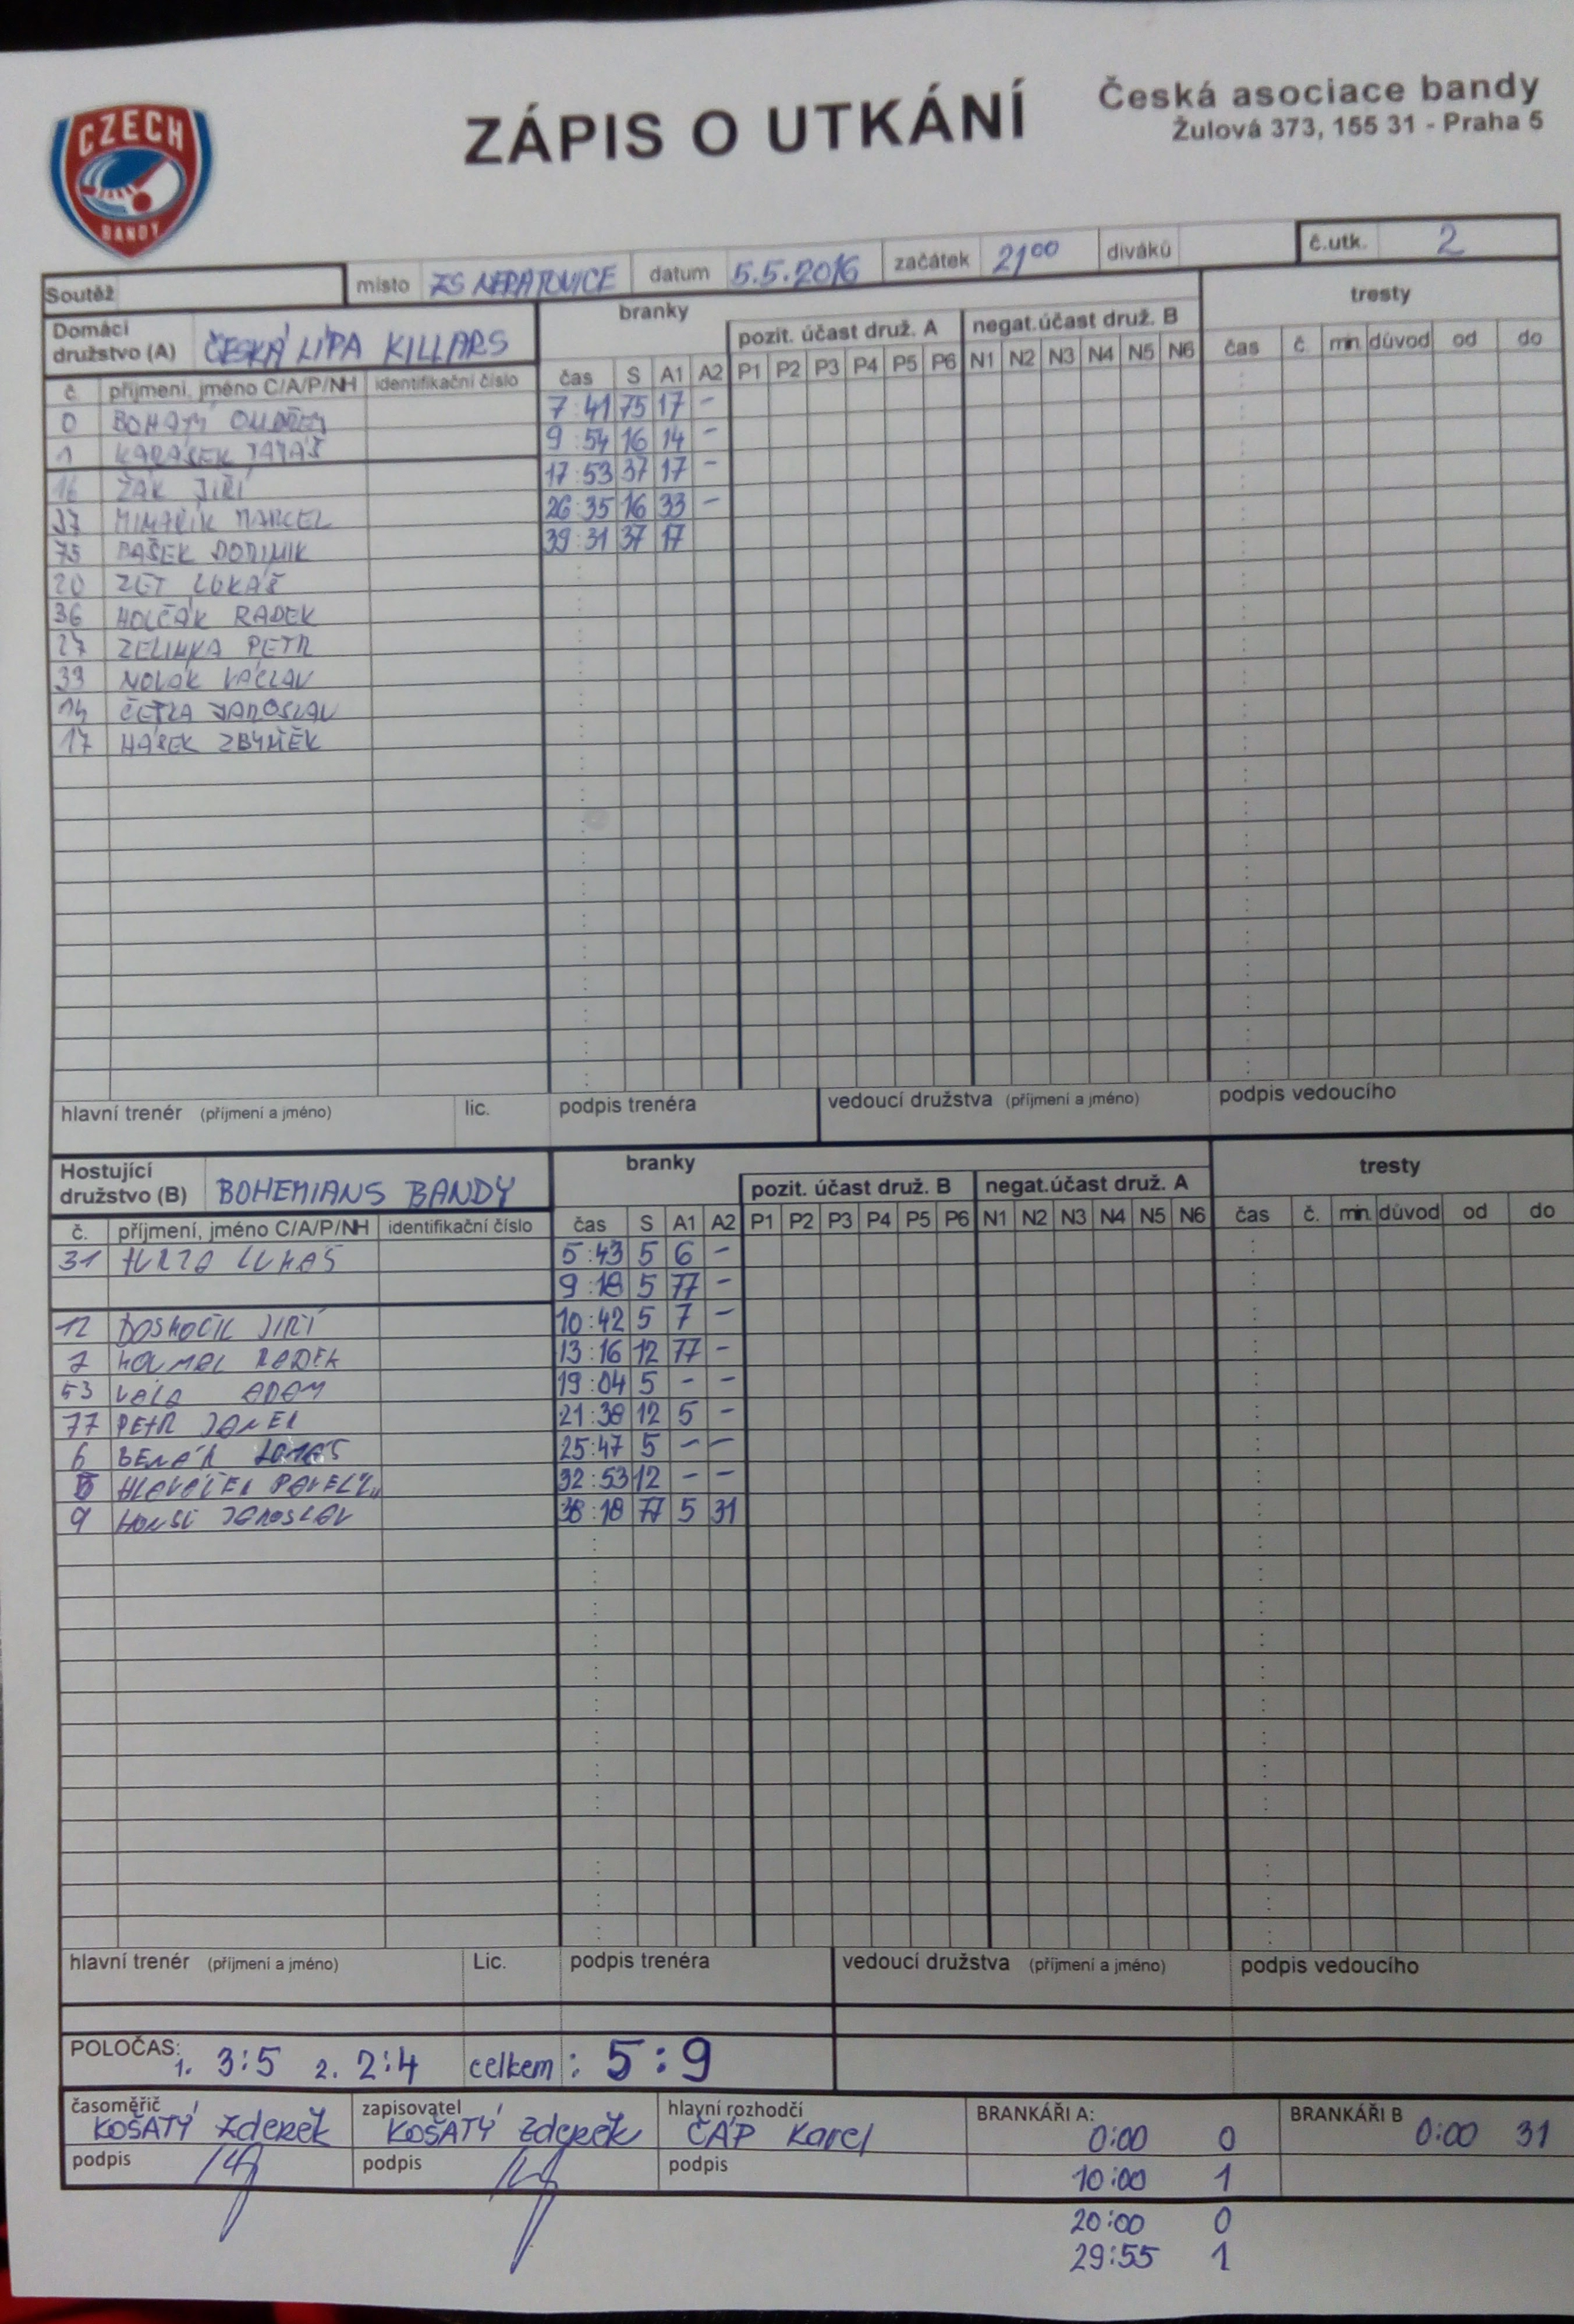 CZECH
BANDY
ZÁPIS O UTKÁNÍ
Česká asociace bandy
Žulová 373, 155 31 - Praha 5
Soutěž místo ZS datum 5.5.2016 začátek 21 00 diváků č.utk. 2
Domácí družstvo (A) ČESKÁ LÍPA KILLARS branky pozit. účast druž. A negat.účast druž. B tresty
č. příjmení, jméno C/A/P/NH identifikační číslo čas S A1 A2 P1 P2 P3 P4 P5 P6 N1 N2 N3 N4 N5 N6 čas č. min. důvod od do
0 BOHATÝ 7:41 75 17 -
1 KARÁSEK 9:54 16 14 -
16 ŽÁK JIŘÍ 17:53 37 17 -
37 MARCEL 26:35 16 33 -
75 PAŠEK DOMINIK 39:31 37 17
20 ZET LUKÁŠ
36 HOLČÁK RADEK
27 ZELINKA PETR
33 NOVÁK VÁCLAV
14 JAROSLAV
17 HAŠEK ZBYNĚK
hlavní trenér (příjmení a jméno) lic. podpis trenéra vedoucí družstva (příjmení a jméno) podpis vedoucího
Hostující družstvo (B) BOHEMIANS BANDY branky pozit. účast druž. B negat.účast druž. A tresty
č. příjmení, jméno C/A/P/NH identifikační číslo čas S A1 A2 P1 P2 P3 P4 P5 P6 N1 N2 N3 N4 N5 N6 čas č. min. důvod od do
31 LUKÁŠ 5:43 5 6 -
9:18 5 77 -
12 DOSKOČIL JIŘÍ 10:42 5 7 -
7 RADEK 13:16 12 77 -
53 VÁLA ADAM 19:04 5 - -
77 PETR 21:38 12 5 -
6 25:47 5 - -
HLAVÁČEK PAVEL 32:53 12 - -
9 JAROSLAV 38:18 77 5 31
hlavní trenér (příjmení a jméno) Lic. podpis trenéra vedoucí družstva (příjmení a jméno) podpis vedoucího
POLOČAS: 1. 3:5 2. 2:4 celkem: 5:9
časoměřič KOŠATÝ Zdeněk zapisovatel KOŠATÝ Zdeněk hlavní rozhodčí ČÁP Karel BRANKÁŘI A: 0:00 0 BRANKÁŘI B 0:00 31
podpis podpis podpis 10:00 1
20:00 0
29:55 1